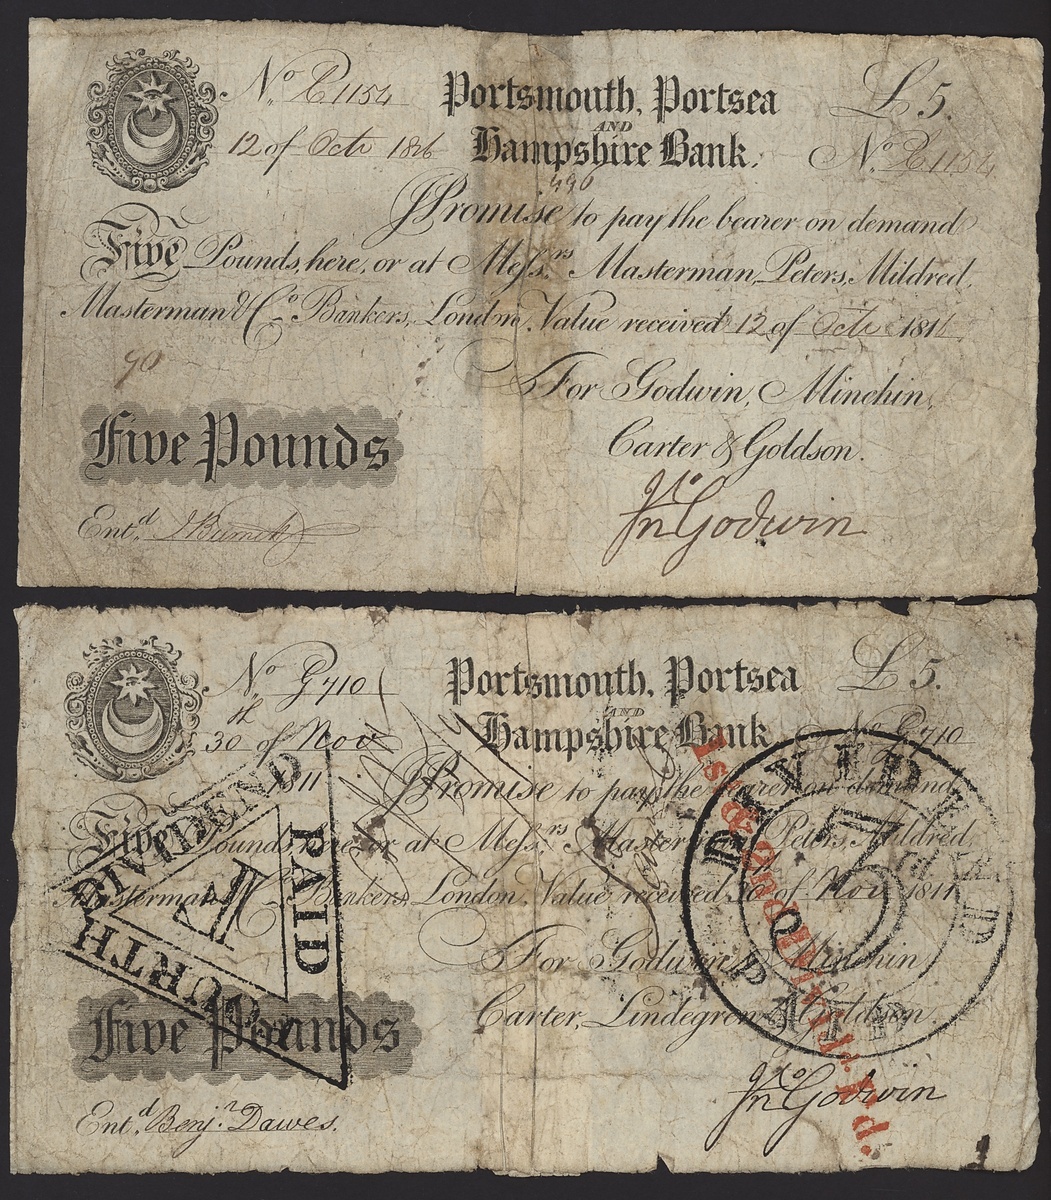 No. E1154
Portsmouth, Portsea
£5.
AND
12 of Octr 1816
Hampshire Bank.
No. E1154
490
I Promise to pay the bearer on demand
Five Pounds, here, or at Messrs. Masterman, Peters, Mildred,
Masterman & Co. Bankers, London, Value received 12 of Octr 1816
90
For Godwin, Minchin,
Carter & Goldson.
Five Pounds
Jno Godwin
Entd.
No. G710
Portsmouth, Portsea
£5.
AND
30th of Nov
Hampshire Bank
No G710
1811
I Promise to pay the bearer on demand
Five Pounds, here, or at Messrs. Masterman, Peters, Mildred,
Masterman & Co. Bankers, London, Value received 30 of Nov 1811
For Godwin, Minchin,
Carter, Lindegren & Goldson.
Five Pounds
Jno Godwin
Entd. Benjn. Dawes.
FOURTH DIVIDEND PAID
4
DIVIDEND PAID
3rd
1st & 2nd